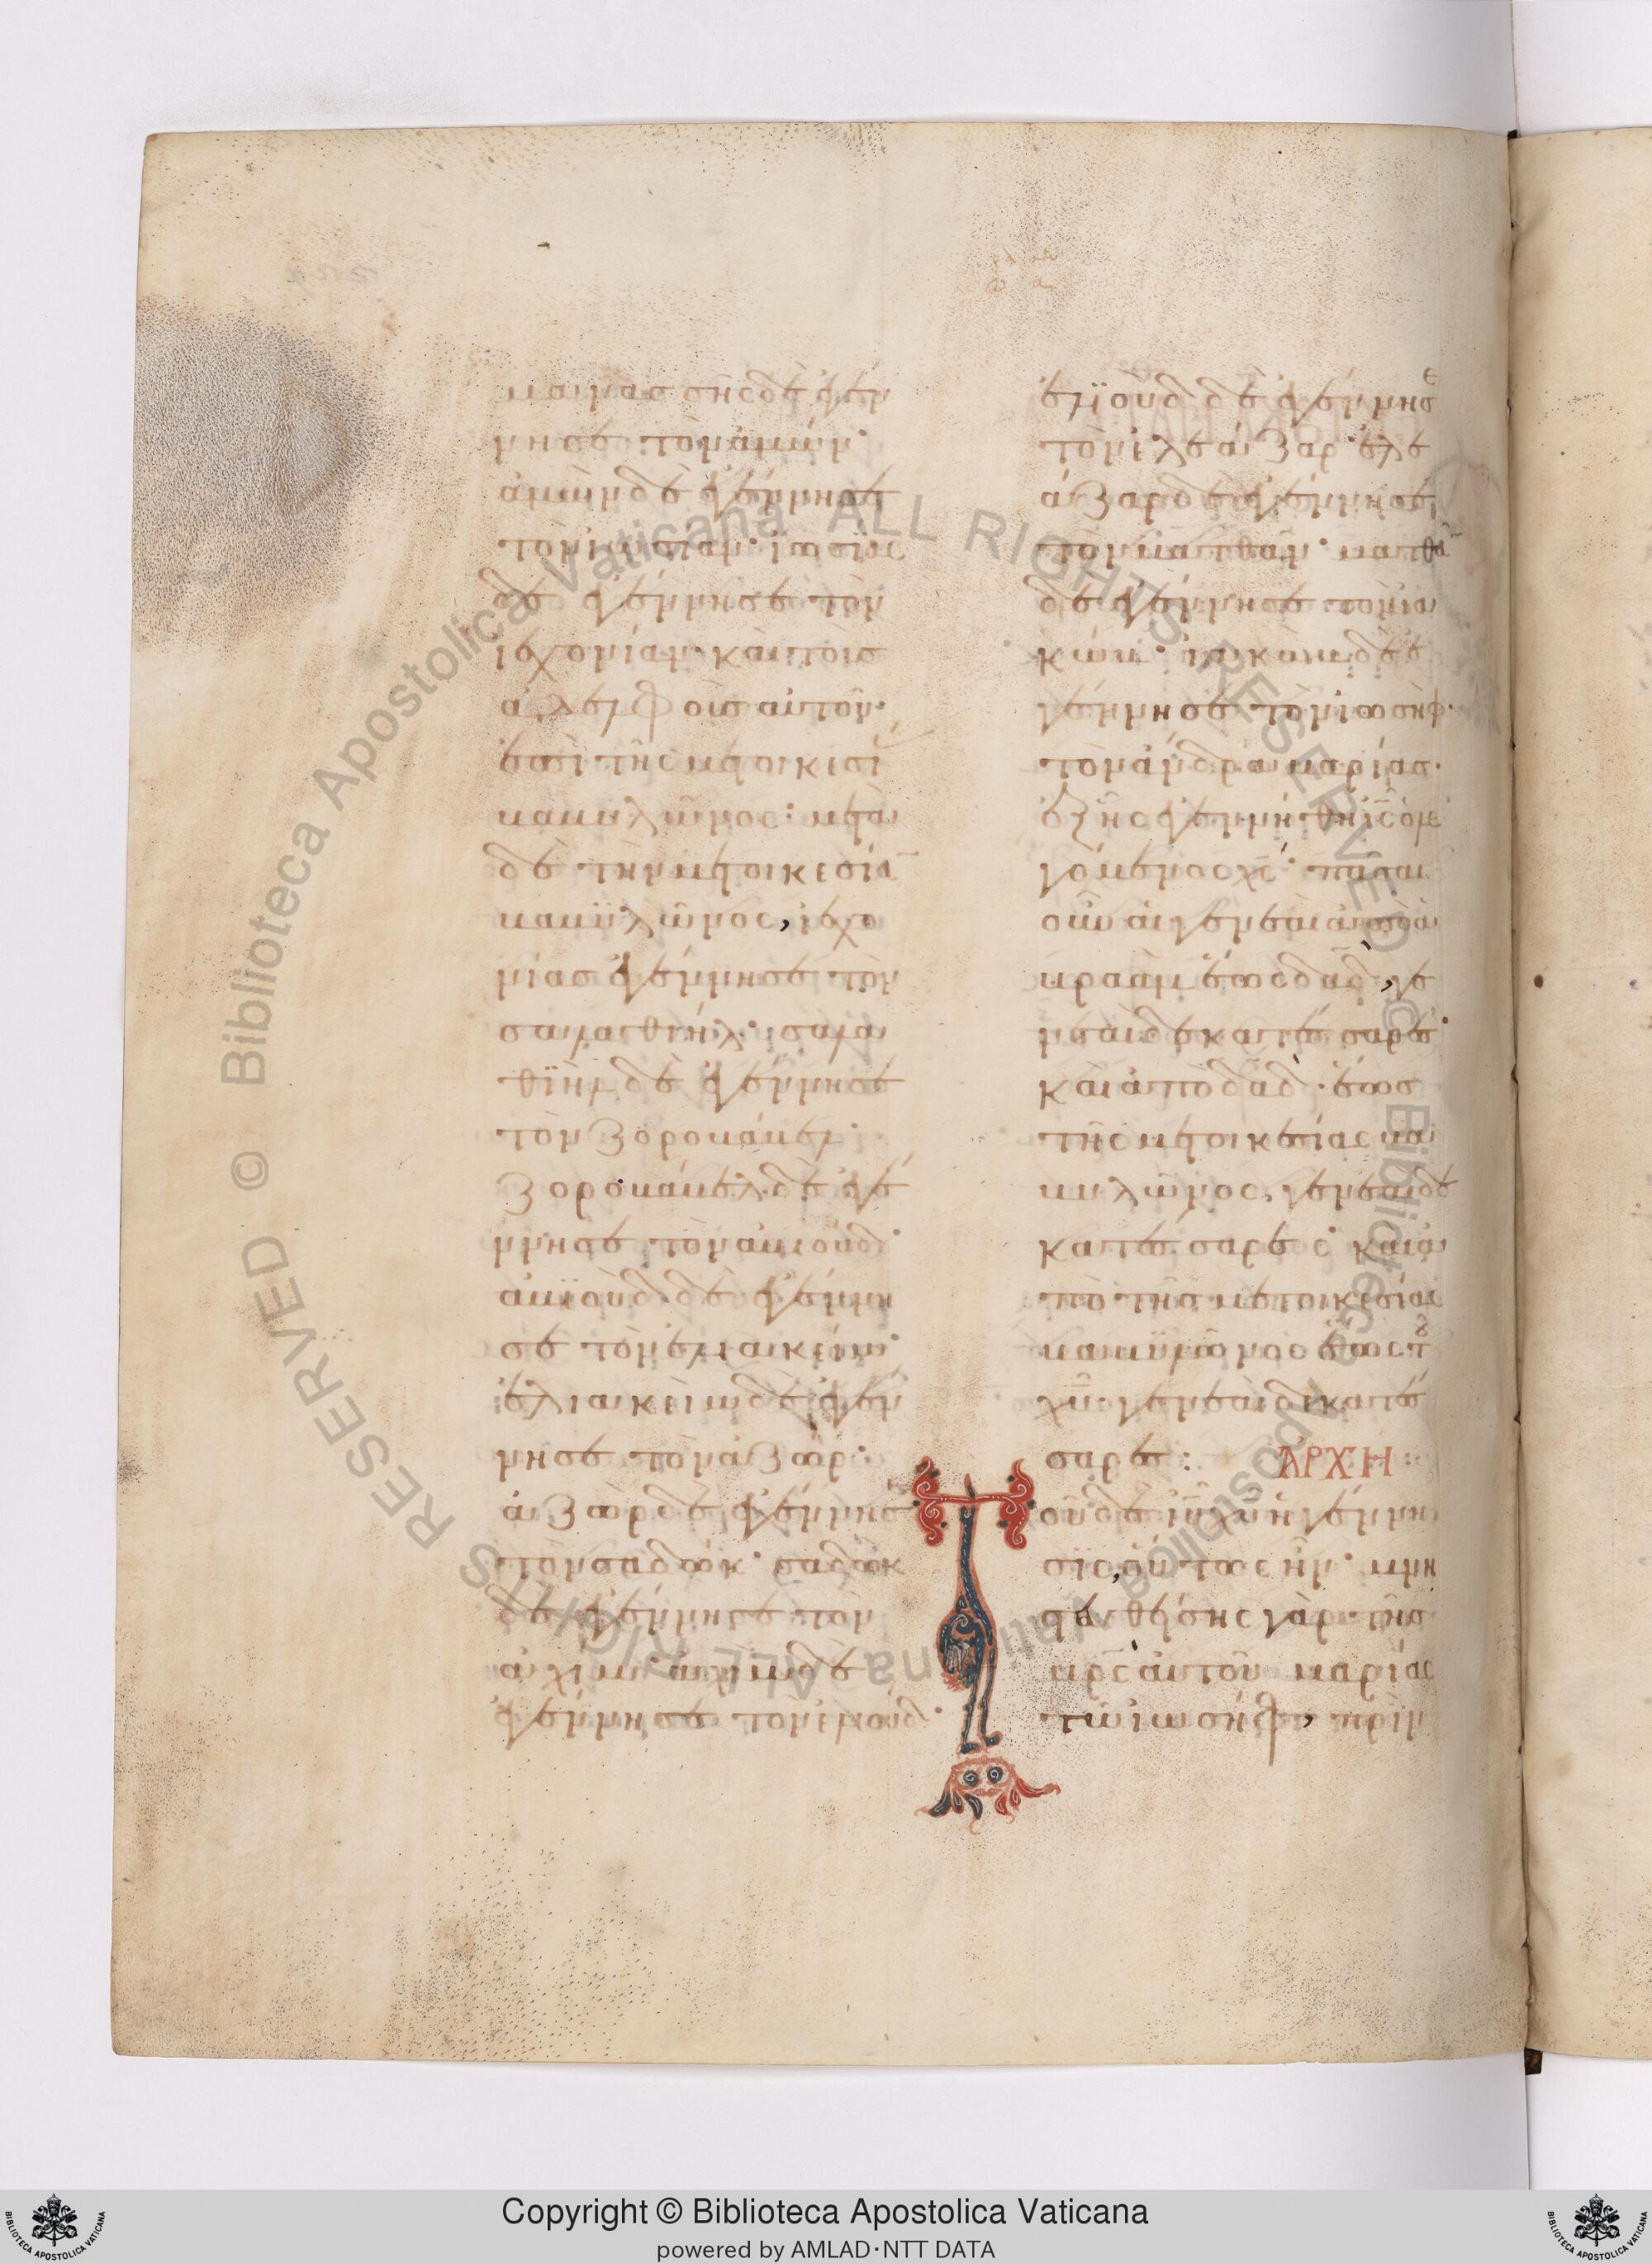 μανασσῆς δὲ ἐγέν
νησε τὸν ἀμών·
ἀμὼν δὲ ἐγέννησε
τὸν ἰωσίαν· ἰωσίας
δὲ ἐγέννησε τὸν
ἰεχονίαν· καὶ τοὺς
ἀδελφοὺς αὐτοῦ·
ἐπὶ τῆς μετοικεσί
βαβυλῶνος: μετὰ
δὲ τὴν μετοικεσίαν
βαβυλῶνος, ἰεχο
νίας ἐγέννησε τὸν
σαλαθιήλ· σαλα
θιὴλ δὲ ἐγέννησε
τὸν ζοροβάβελ·
ζοροβάβελ δὲ ἐγέ
ννησε τὸν ἀβιούδ·
ἀβιοὺδ δὲ ἐγέννη
σε τὸν ἐλιακείμ·
ἐλιακεὶμ δὲ ἐγέν
νησε τὸν ἀζώρ·
ἀζὼρ δὲ ἐγέννησε
τὸν σαδώκ· σαδὼκ
δὲ ἐγέννησε τὸν
ἀχίμ· ἀχὶμ δὲ
ἐγέννησε τὸν ἐλιούδ·
ἐλιοὺδ δὲ ἐγέννησε
τὸν ἐλεάζαρ· ἐλε
άζαρ δὲ ἐγέννησε
τὸν ματθάν· ματθὰν
δὲ ἐγέννησε τὸν ἰα
κώβ· ἰακὼβ δὲ ἐ
γέννησε τὸν ἰωσὴφ·
τὸν ἄνδρα μαρίας·
ἐξ ἧς ἐγεννήθη ἰς ὁ λε
γόμενος χς· πᾶσαι
οὖν αἱ γενεαὶ ἀπὸ ἀ
βραὰμ ἕως δαδ, γε
νεαὶ δεκατέσσαρες·
καὶ ἀπὸ δαδ· ἕως
τῆς μετοικεσίας βα
βυλῶνος, γενεαὶ δε
κατέσσαρες· καὶ ἀ
πὸ τῆς μετοικεσίας
βαβυλῶνος ἕως τοῦ
χυ· γενεαὶ δεκατέσ
σαρες: ΑΡΧΗ:
Τοῦ δὲ ἰυ χυ ἡ γέννη
σις, οὕτως ἦν· μνη
στευθείσης γὰρ τῆς
μρς αὐτοῦ μαρίας
τῷ ἰωσήφ, πρὶν
Copyright © Biblioteca Apostolica Vaticana
powered by AMLAD·NTT DATA